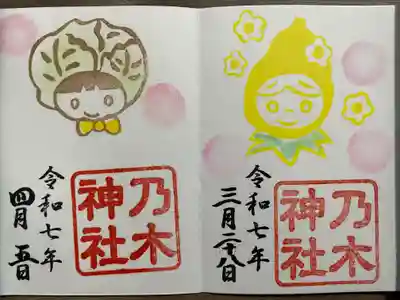 乃木
神社
令和七年
三月二十八日
乃木
神社
令和七年
四月五日